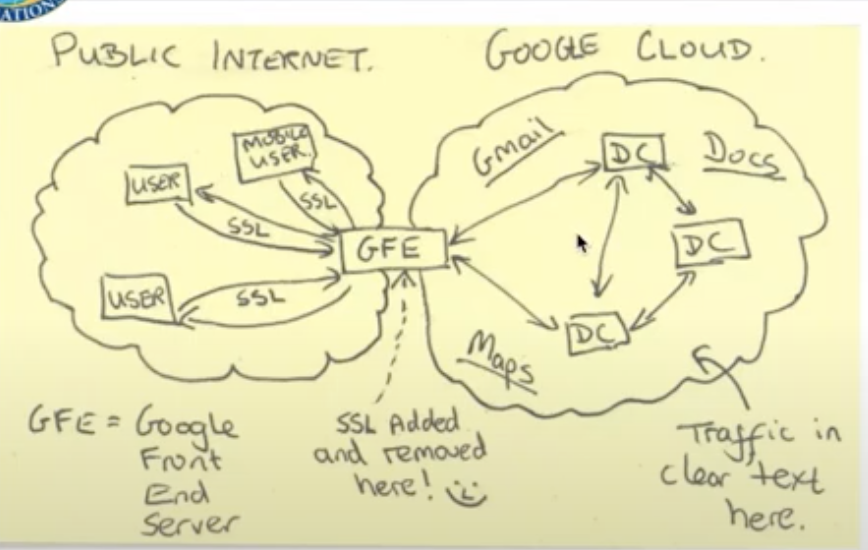 ATIONS
PUBLIC INTERNET.
GOOGLE CLOUD.
MOBILE
USER.
USER
SSL
SSL
GFE
USER
SSL
Gmail
DC
Docs
DC
DC
Maps
GFE = Google
Front
End
Server
SSL Added
and removed
here!
Traffic in
clear text
here.